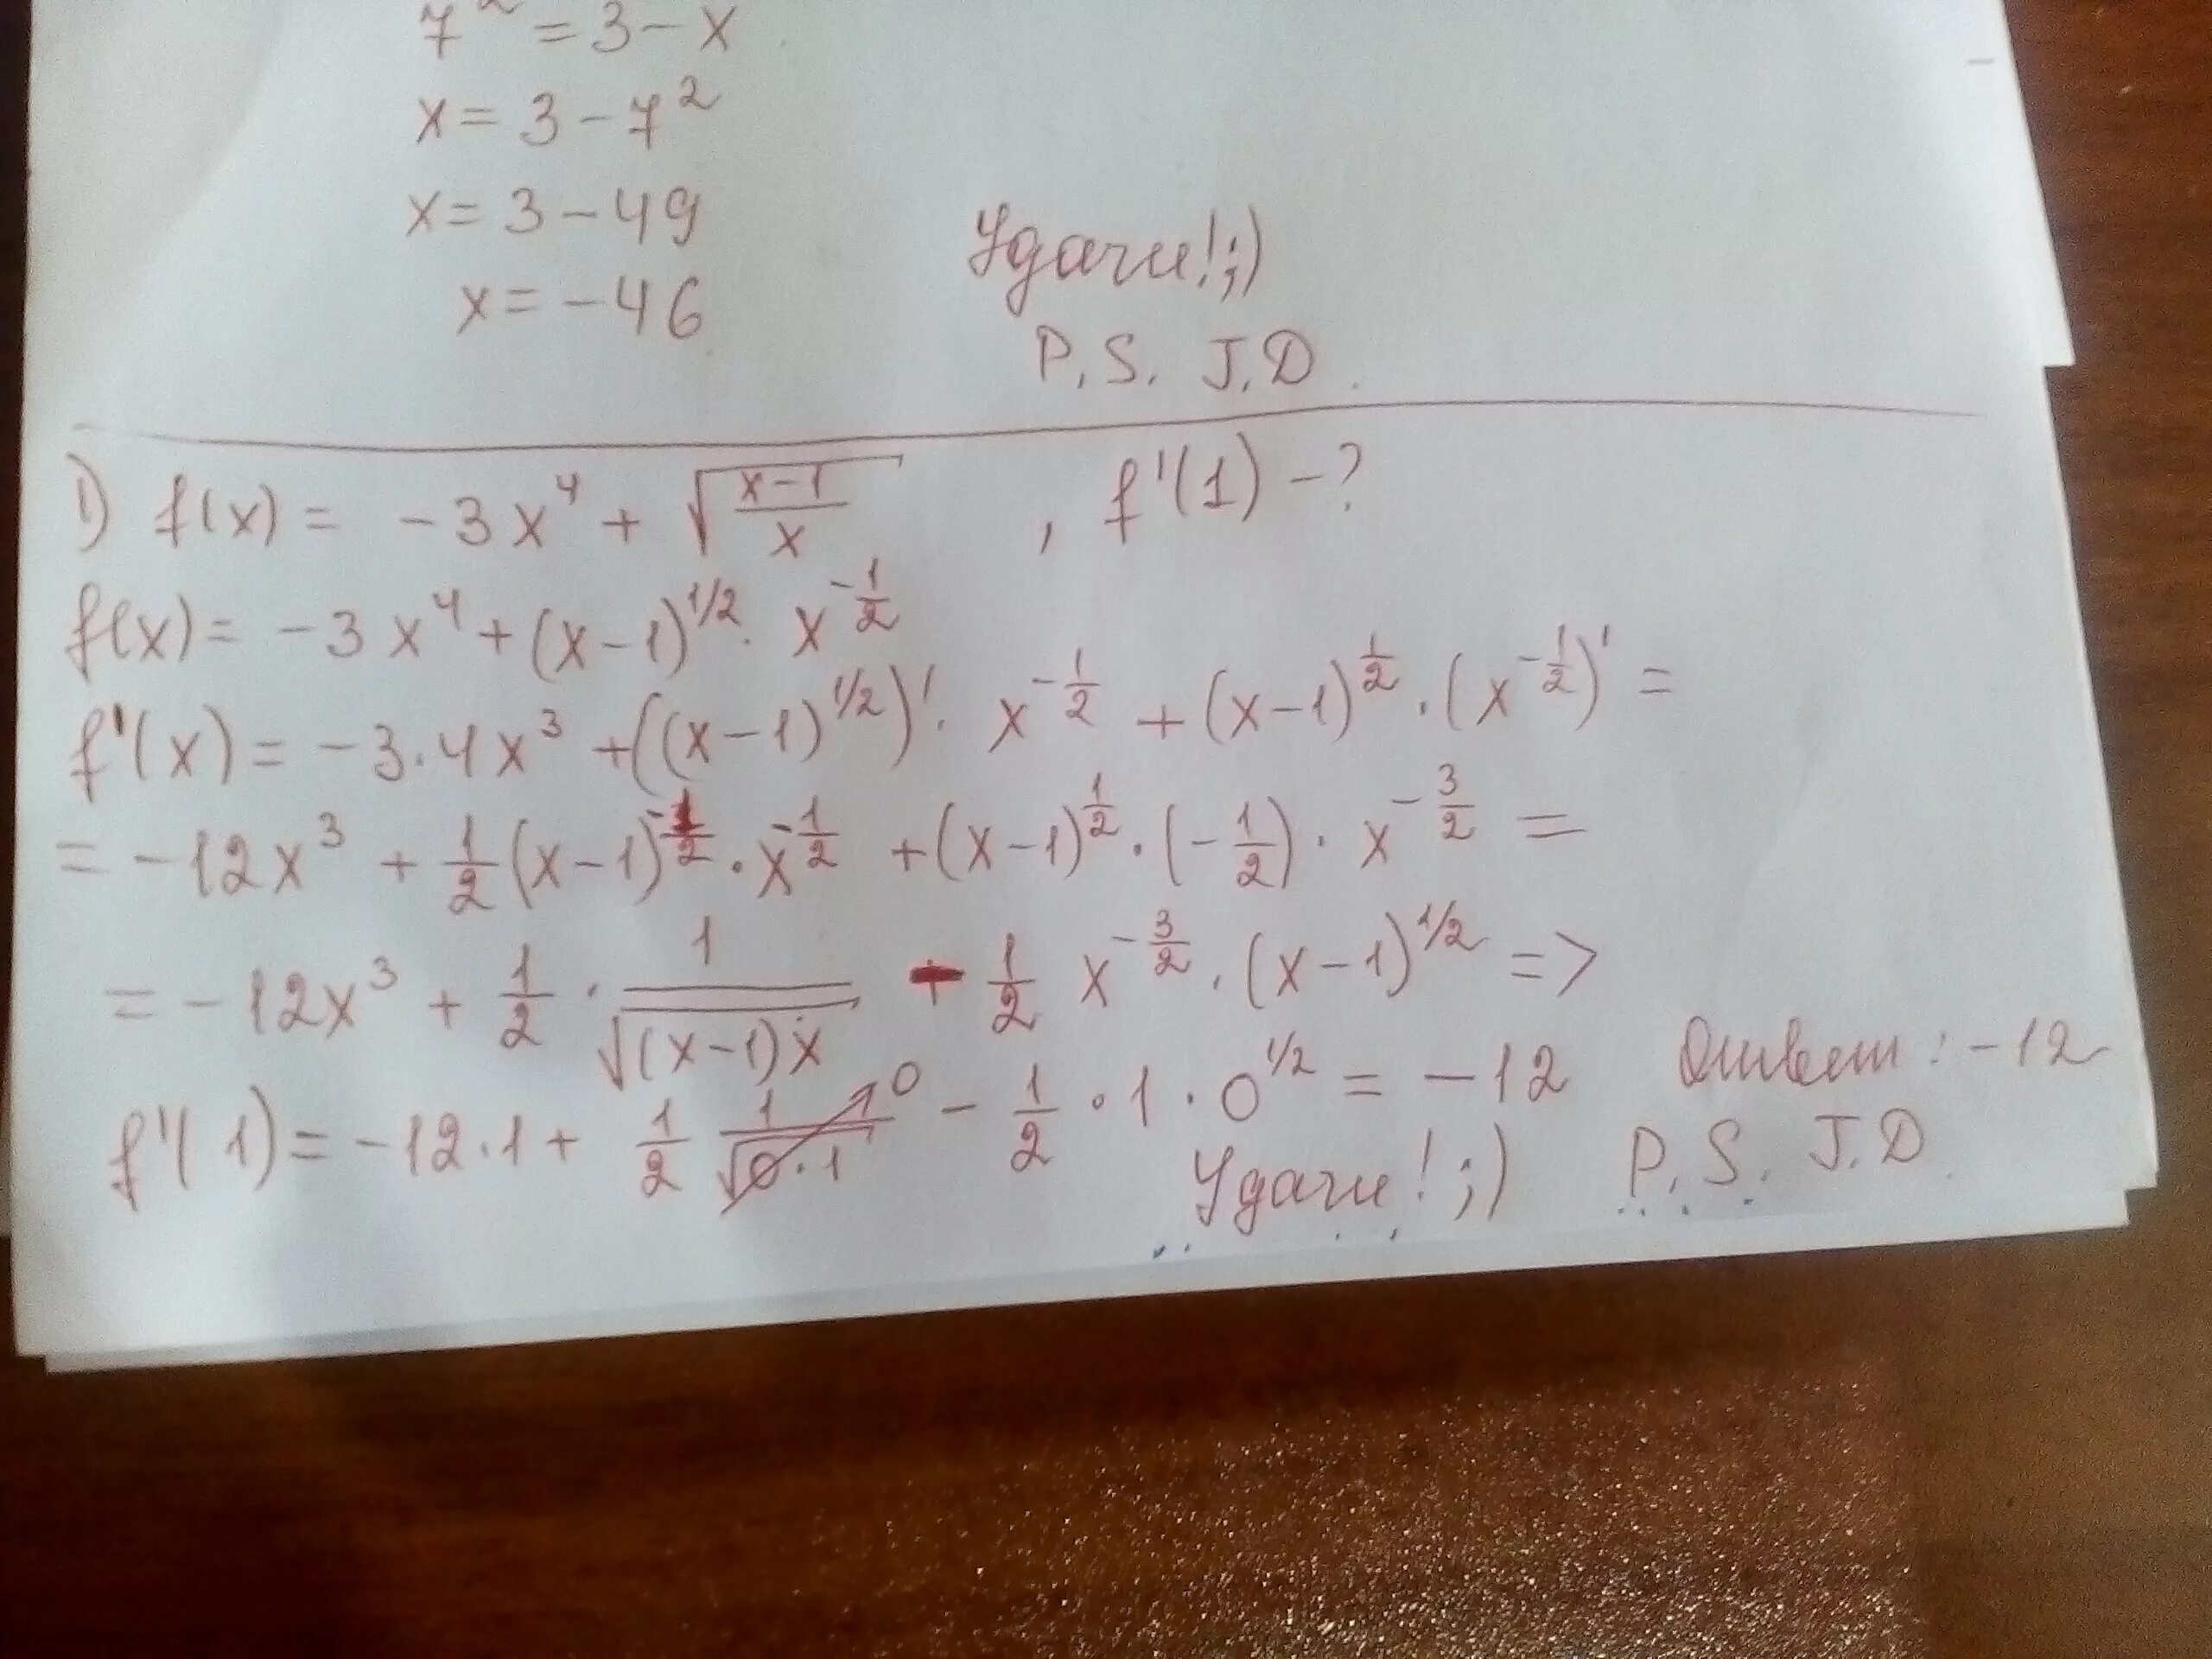 7² = 3 - x
x = 3 - 7²
x = 3 - 49
x = -46
Удачи! ;)
P.S. J.D.
1) f(x) = -3x⁴ + √((x-1)/x) , f'(1) - ?
f(x) = -3x⁴ + (x-1)^(1/2) · x^(-1/2)
f'(x) = -3·4x³ + ((x-1)^(1/2))' · x^(-1/2) + (x-1)^(1/2) · (x^(-1/2))' =
= -12x³ + 1/2 (x-1)^(-1/2) · x^(-1/2) + (x-1)^(1/2) · (-1/2) · x^(-3/2) =
= -12x³ + 1/2 · 1/√((x-1)x) - 1/2 x^(-3/2) · (x-1)^(1/2) =>
f'(1) = -12·1 + 1/2 1/√(0·1) → 0 - 1/2 · 1 · 0^(1/2) = -12 Ответ: -12
Удачи! ;) P.S. J.D.